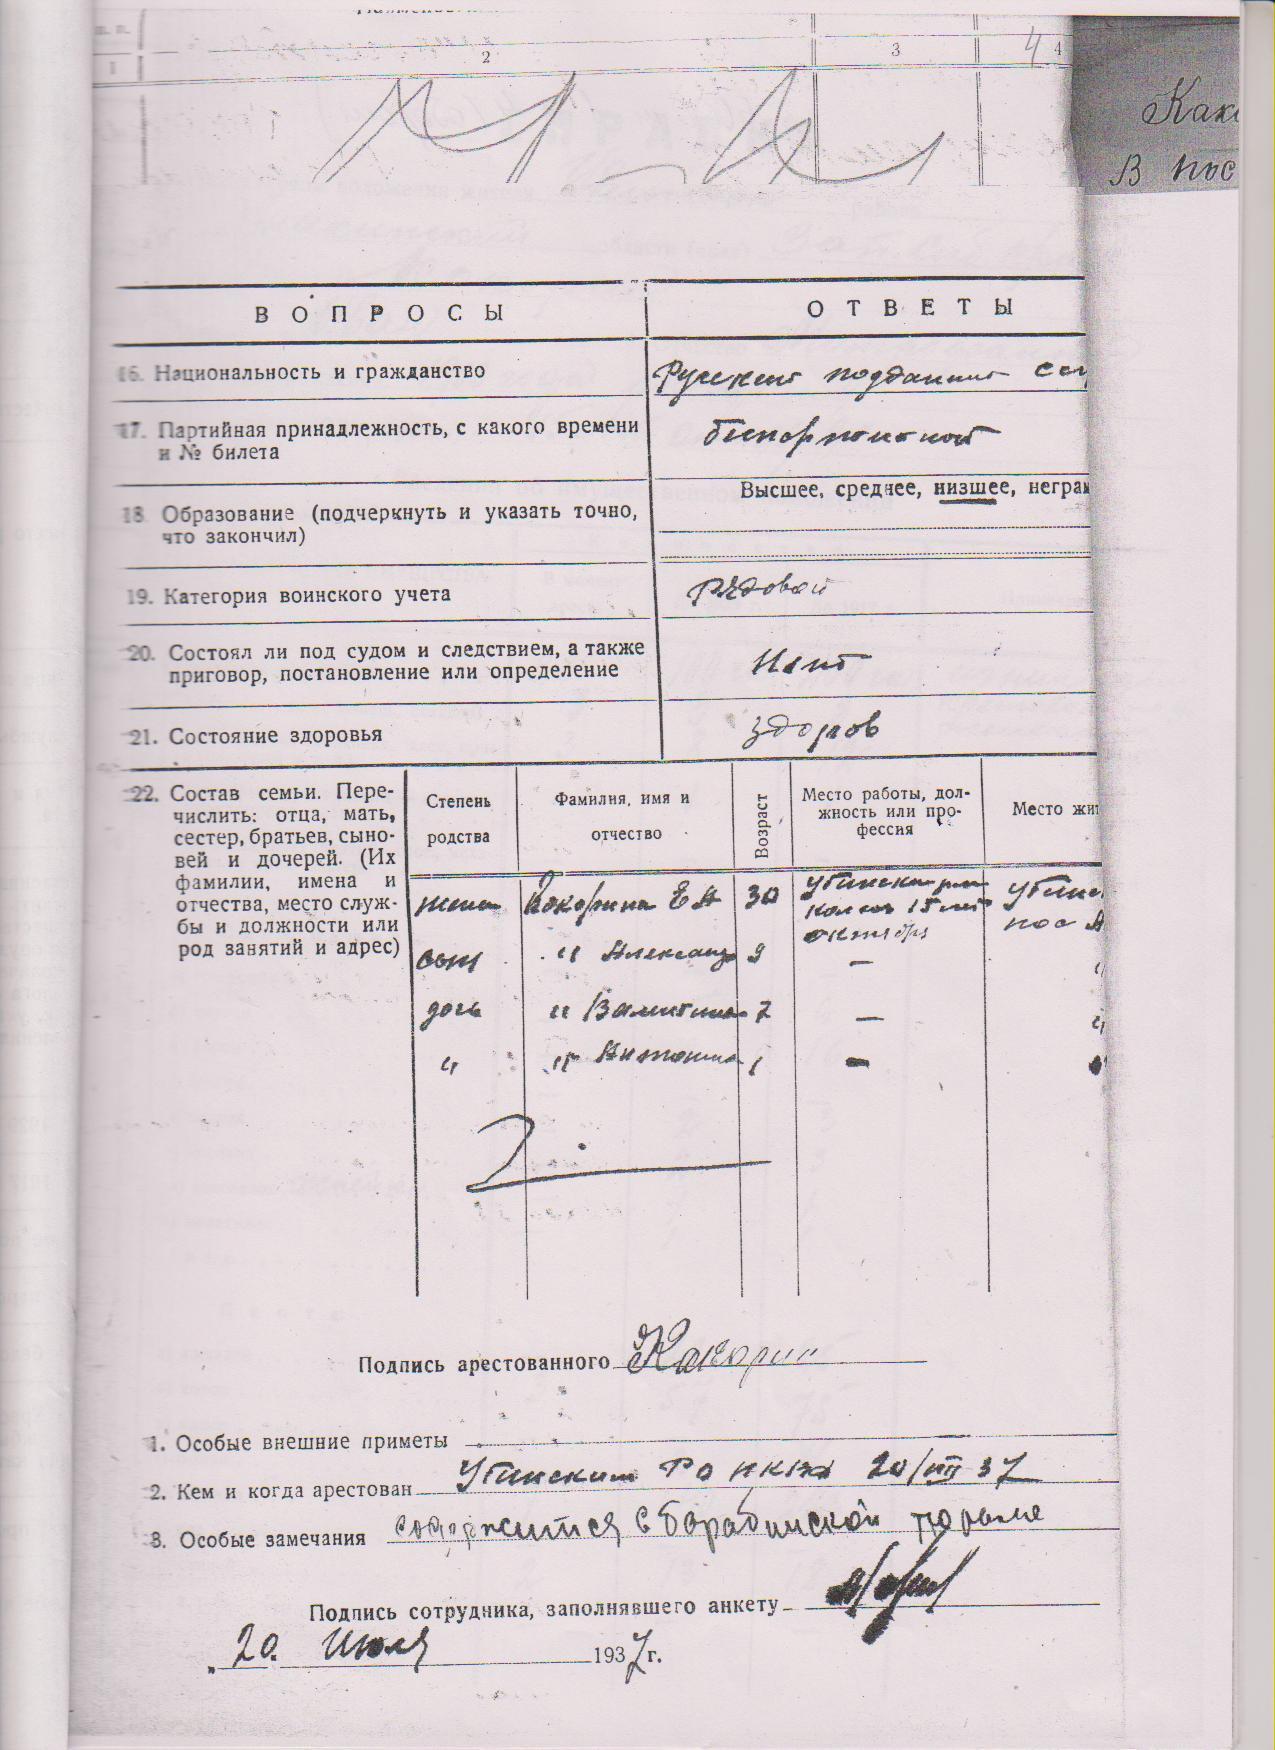 п. п.
1 2 3 4 4
Како
В пос
ВОПРОСЫ ОТВЕТЫ
16. Национальность и гражданство Русский подданный ссс
17. Партийная принадлежность, с какого времени
и № билета беспартийный
Высшее, среднее, низшее, неграм
18. Образование (подчеркнуть и указать точно,
что закончил)
19. Категория воинского учета рядовой
20. Состоял ли под судом и следствием, а также
приговор, постановление или определение Нет
21. Состояние здоровья здоров
22. Состав семьи. Пере-
числить: отца, мать,
сестер, братьев, сыно-
вей и дочерей. (Их
фамилии, имена и
отчества, место служ-
бы и должности или
род занятий и адрес)
Степень
родства
Фамилия, имя и
отчество
Возраст
Место работы, дол-
жность или про-
фессия
Место жит
жена Кокорина Е А 30 Убинский
колхоз 15 лет
октября
Убинс
пос
сын " Александр 9 — "
дочь " Валентина 7 — "
" " Антонина 1 —
Подпись арестованного Какорин
1. Особые внешние приметы
2. Кем и когда арестован Убинским РО НКВД 20/VII 37
3. Особые замечания содержится в Барабинской тюрьме
Подпись сотрудника, заполнявшего анкету
„ 20. Июля 1937 г.